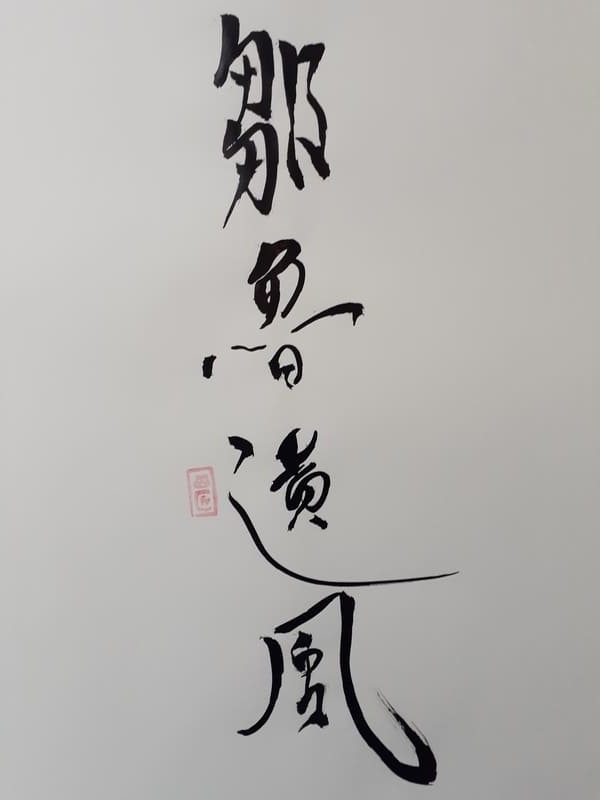 鄒魯遺風